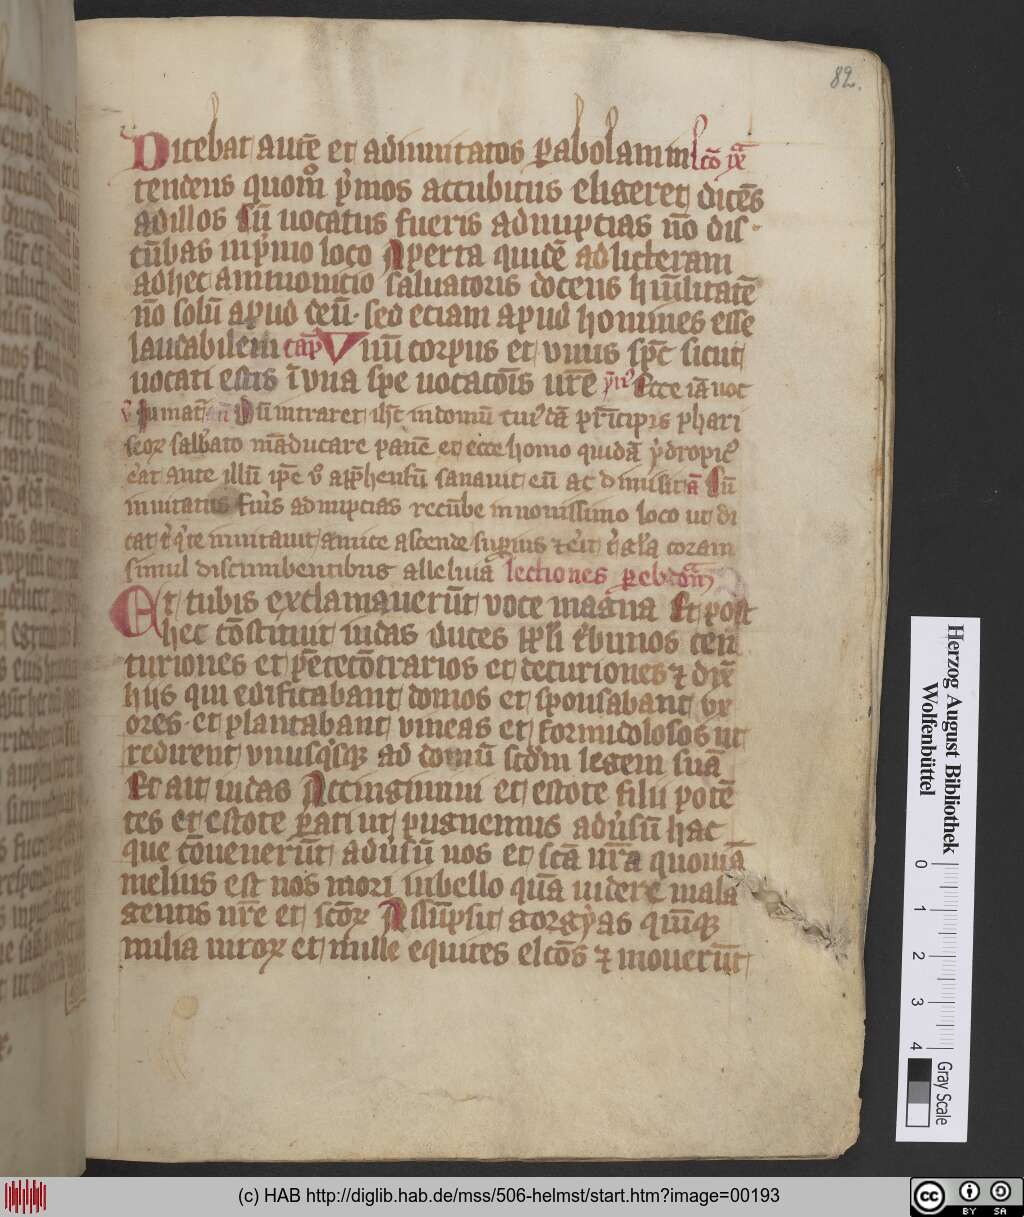 82.
Dicebat autē et adinuitatos ꝑabolam in lcō ix
tendens quomº p̄mos accubitus eligerēt dicēs
adillos Cū uocatus fueris adnuptias nō dis-
cūbas inp̄mo loco Aperta quidē adlitteram
adhec ammonicio saluatoris docens hūilitatē
nō solū apud deū· sed eciam apud homines esse
laudabilem cap̄ Unū corpus et unus sp̄c sicut
uocati estis ī una spe uocacōis ur̄e Ecce iā uoc
Dū intraret ihc̄ indomū cuiꝰdā prīcipis phari
seoꝝ sabbato māducare panē et ecce homo quidā ydropicꝰ
erat ante illū ip̄e ū app̄hensū sanauit eū ac dimisit ā Cū
inuitatus fūis adnuptias recūbe innouissimo loco ut di
cat t̄ q̄ te inuitauit amice ascende supius ⁊ ēit t̄ gl̄a coram
simul discumbentibus alleluiā lectiones ꝑ ebdom̄
Et tubis exclamauerūt uoce magna Et post
hec cōstituit iudas duces pp̄li tribunos cen
turiones et pētecōtrarios et decuriones ⁊ dix̄
hijs qui edificabant domos et sponsabant ux
ores· et plantabant uineas et formidolosos ut
redirent unusq̄sqꝫ ad domū scdm̄ legem suā
Et ait iudas Accingimini et estote filii potē
tes et estote ꝑati ut pugnemus adūsū hac
que cōuenerūt adūsū nos et scā nr̄a quoniā
melius est nos mori inbello quā uidere mala
gentis nr̄e et scōꝝ Assūpsit gorgyas quīqꝫ
milia uiroꝝ et mille equites elcōs ⁊ mouerūt
Herzog August Bibliothek
Wolfenbüttel
0 1 2 3 4
Gray Scale
(c) HAB http://diglib.hab.de/mss/506-helmst/start.htm?image=00193
cc BY SA